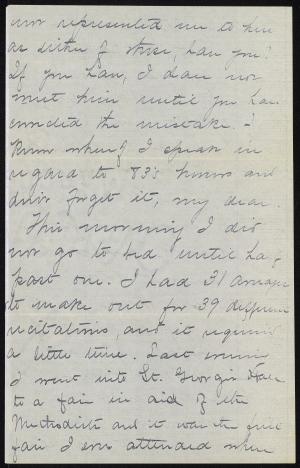 not represented me to him
as either of these, have you?
If you have, I dare not
meet him until you have
corrected the mistake. I
know whereof I speak in
regard to '83's honors and
don't forget it, my dear.
This morning I did
not go to bed until half
past one. I had 31
to make out for 39 different
recitations, and it required
a little time. Last evening
I went into St. George's Hall
to a fair in aid of the
Methodists and it was the first
fair I ever attended where